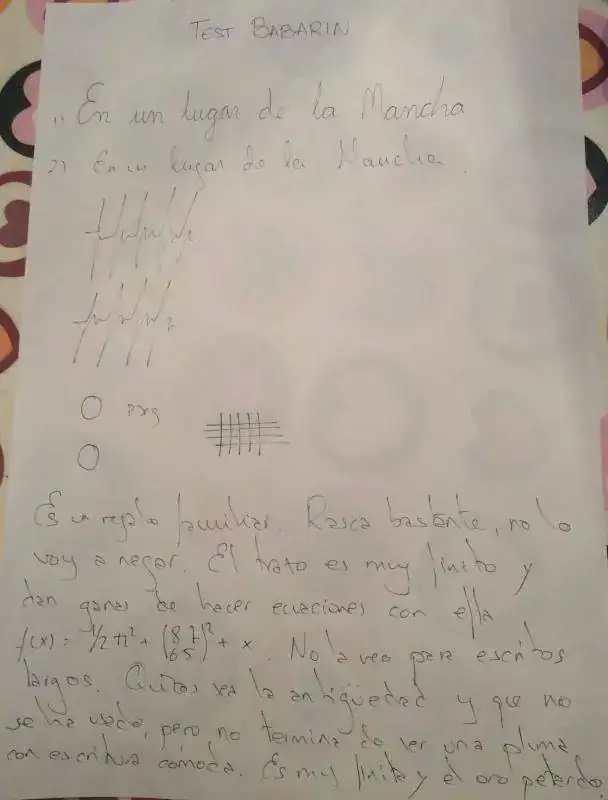 TEST BABARIN
1) En un lugar de la Mancha
2) En un lugar de la Mancha.
Es un regalo familiar. Rasca bastante, no lo
voy a negar. El trato es muy finito y
dan ganas de hacer ecuaciones con ella
No la veo para escritos
largos. Quizás sea la antigüedad y que no
se ha usado, pero no termina de ser una pluma
con escritura cómoda. Es muy finita y el oro petardo.